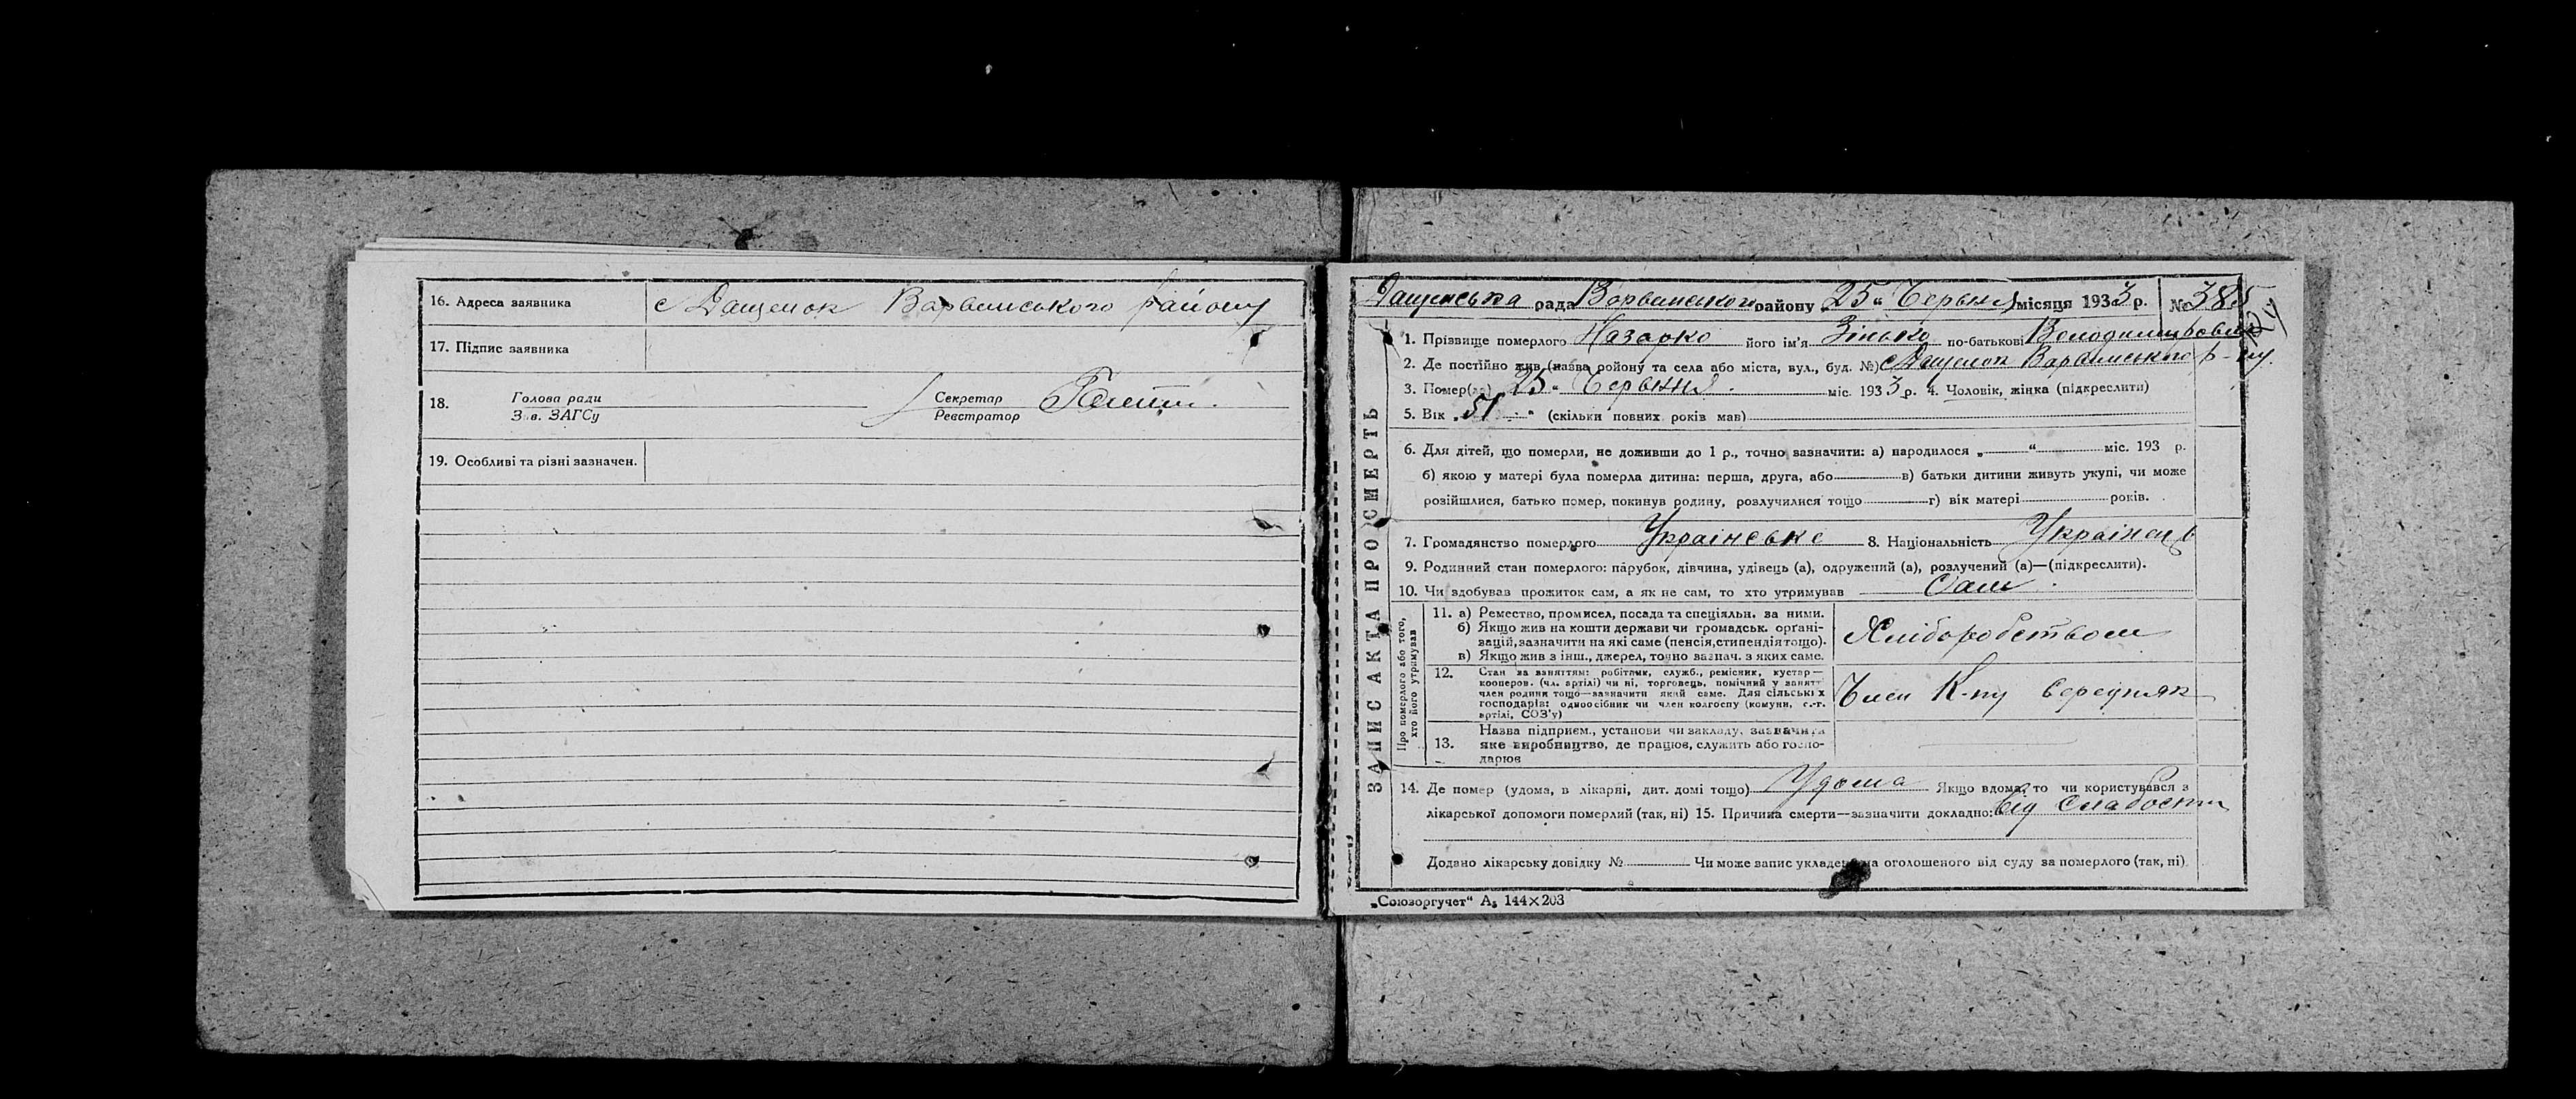 16. Адреса заявника с Дащенок Варвинського району
17. Підпис заявника
18. Голова ради Секретар
Зав. ЗАГСу Реєстратор
19. Особливі та різні зазначен.
Дащенська рада Варвинського району „25“ Червня місяця 1933 р. № 385
ЗАПИС АКТА ПРО СМЕРТЬ
1. Прізвище померлого Назарко його ім'я Зінько по-батькові Володимирович
2. Де постійно жив (назва району та села або міста, вул., буд. №) с Дащенок Варвинського р-ну.
3. Помер(ла) 25 “ Червня міс. 1933 р. 4. Чоловік, жінка (підкреслити)
5. Вік „51“ (скільки повних років мав)
6. Для дітей, що померли, не доживши до 1 р., точно зазначити: а) народилося „ “ міс. 193 р.
б) якою у матері була померла дитина: перша, друга, або в) батьки дитини живуть укупі, чи може
розійшлися, батько помер, покинув родину, розлучилися тощо г) вік матері років.
7. Громадянство померлого Українське 8. Національність Українець
9. Родинний стан померлого: парубок, дівчина, удівець (а), одружений (а), розлучений (а)—(підкреслити).
10. Чи здобував прожиток сам, а як не сам, то хто утримував Сам
Про померлого або того, хто його утримував
11. а) Ремество, промисел, посада та спеціяльн. за ними.
б) Якщо жив на кошти держави чи громадськ. орґані-
зацій, зазначити на які саме (пенсія, стипендія тощо).
в) Якщо жив з інш., джерел, точно зазнач. з яких саме.
Хліборобством
12. Стан за заняттям: робітник, служб., ремісник, кустар—
кооперов. (чл. артілі) чи ні, торговець, помічний у занятт
член родини тощо—зазначити який саме. Для сільських
господарів: одноосібник чи член колгоспу (комуни, с.-г.
артілі, СОЗ'у)
Член К-пу Середняк
13. Назва підприєм., установи чи закладу, зазначити
яке виробництво, де працює, служить або госпо-
дарює
14. Де помер (удома, в лікарні, дит. домі тощо) Удома Якщо вдома, то чи користувався з
лікарської допомоги померлий (так, ні) 15. Причина смерти—зазначити докладно: Від Слабости
Додано лікарську довідку № Чи може запис укладено на оголошеного від суду за померлого (так, ні)
„Союзоргучет“ А5 144×203